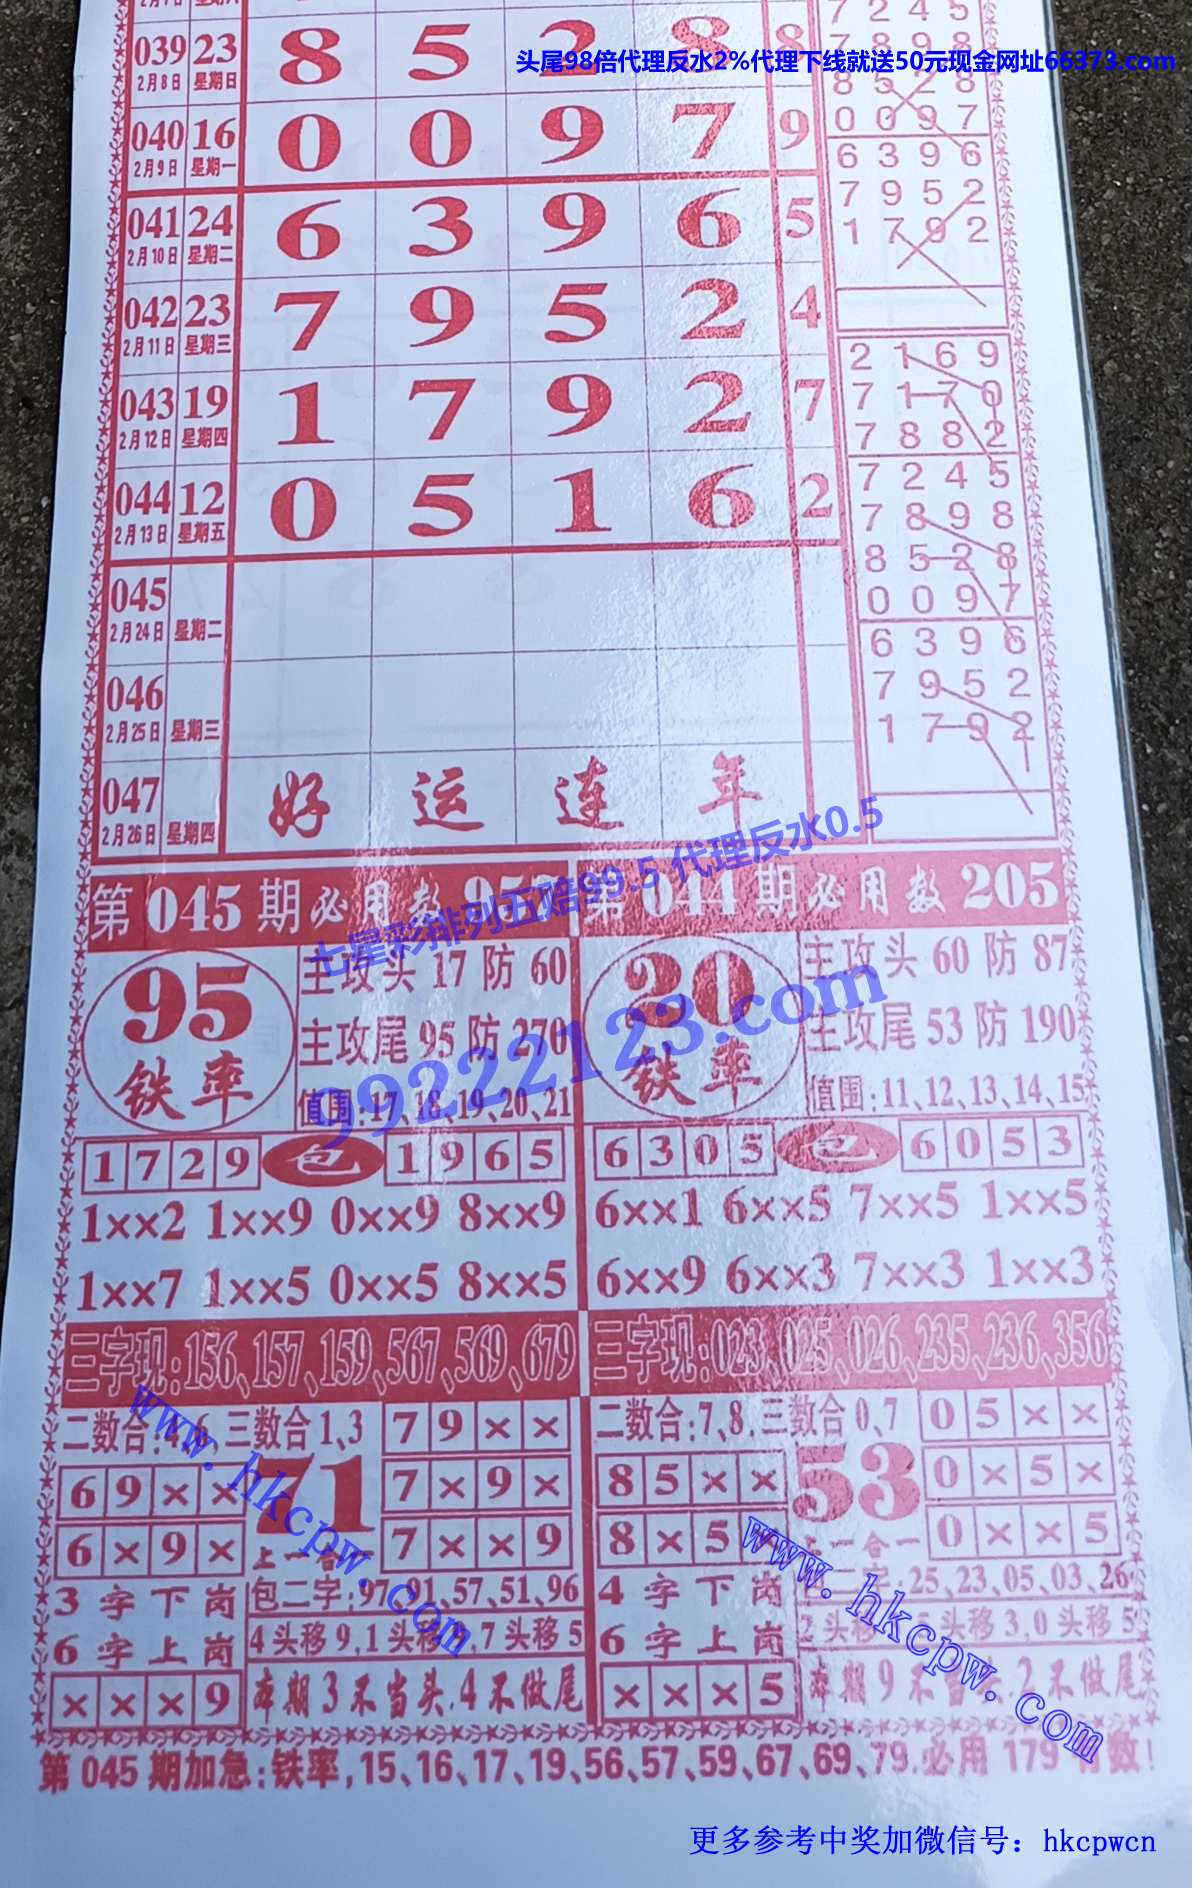 头尾98倍代理反水2%代理下线就送50元现金网址66373.com
7245
039 23 8 5 2 8 8
2月8日 星期日
7898
8528
040 16 0 0 9 7 9
2月9日 星期一
0097
6396
041 24 6 3 9 6 5
2月10日 星期二
7952
1792
042 23 7 9 5 2 4
2月11日 星期三
2169
043 19 1 7 9 2 7
2月12日 星期四
7170
7882
044 12 0 5 1 6 2
2月13日 星期五
7245
7898
8528
0097
045
2月24日 星期二
6396
7952
1792
046
2月25日 星期三
047 好 运 连 年
2月26日 星期四
七星彩排列五赔99.5 代理反水0.5
99222123.com
第045期必用数
95铁率
主攻头17防60
主攻尾95防270
值围:17、18、19、20、21
1729 包 1965
1××2 1××9 0××9 8××9
1××7 1××5 0××5 8××5
三字现:156、157、159、567、569、679
二数合: 6、三数合1、3
79××
69××
71
7×9×
6×9×
上一合一
7××9
3字下岗
包二字:97、91、57、51、96
6字上岗
4头移9,1头移 ,7头移5
×××9
本期3不当头,4不做尾
第044期必用数205
20铁率
主攻头60防87
主攻尾53防190
值围:11、12、13、14、15
6305 包 6053
6××1 6××5 7××5 1××5
6××9 6××3 7××3 1××3
三字现:023、025、026、235、236、356
二数合:7、8,三数合0、7
05××
85××
53
0×5×
8×5
一合一
0××5
4字下岗
包二字:25、23、05、03、26
6字上岗
2头移 5头移3,0头移5
×××5
本期9不当头,2不做尾
www.hkcpw.com
www.hkcpw.com
第045期加急:铁率,15、16、17、19、56、57、59、67、69、79.必用179有数!
更多参考中奖加微信号：hkcpwcn